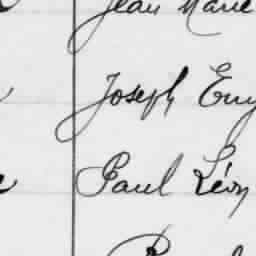 Jean Marie
Joseph Eug
Paul Léon